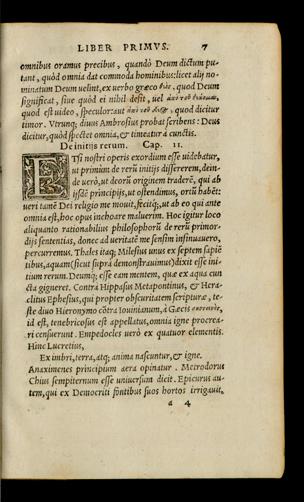 LIBER PRIMVS. 7
omnibus oramus precibus, quandò Deum dictum pu-
tant, quòd omnia dat commoda hominibus: licet alij no-
minatum Deum uelint, ex uerbo græco . quod Deum
significat, siue quòd ei nihil desit, uel ἀπὸ τοῦ
quod est uideo, speculor: aut ἀπὸ τοῦ , quod dicitur
timor. Vtrunq; diuus Ambrosius probat scribens: Deus
dicitur, quòd spectet omnia, & timeatur à cunctis.
De initijs rerum. Cap. II.
ETsi nostri operis exordium esse uidebatur,
ut primùm de rerū initijs dissererem, dein-
de uerò, ut deorū originem traderē, qui ab
ijsdē principijs, ut ostendimus, ortū habēt:
ueri tamē Dei religio me mouit, fecitq́;, ut ab eo qui ante
omnia est, hoc opus inchoare maluerim. Hoc igitur loco
aliquanto rationabilius philosophorū de rerū primor-
dijs sententias, donec ad ueritatē me sensim insinuauero,
percurremus. Thales itaq; Milesius unus ex septem sapiē
tibus, aquam (sicut suprà demonstrauimus) dixit esse ini-
tium rerum. Deumq́; esse eam mentem, quæ ex aqua cun
cta gigneret. Contrà Hippasus Metapontinus, & Hera-
clitus Ephesius, qui propter obscuritatem scripturæ, te-
ste diuo Hieronymo cōtra Iouinianum, à Græcis
id est, tenebricosus est appellatus, omnia igne procrea-
ri censuerunt. Empedocles uerò ex quatuor elementis.
Hinc Lucretius,
Ex imbri, terra, atq; anima nascuntur, & igne.
Anaximenes principium aera opinatur. Metrodorus
Chius sempiternum esse uniuersum dicit. Epicurus au-
tem, qui ex Democriti fontibus suos hortos irrigauit,
a 4